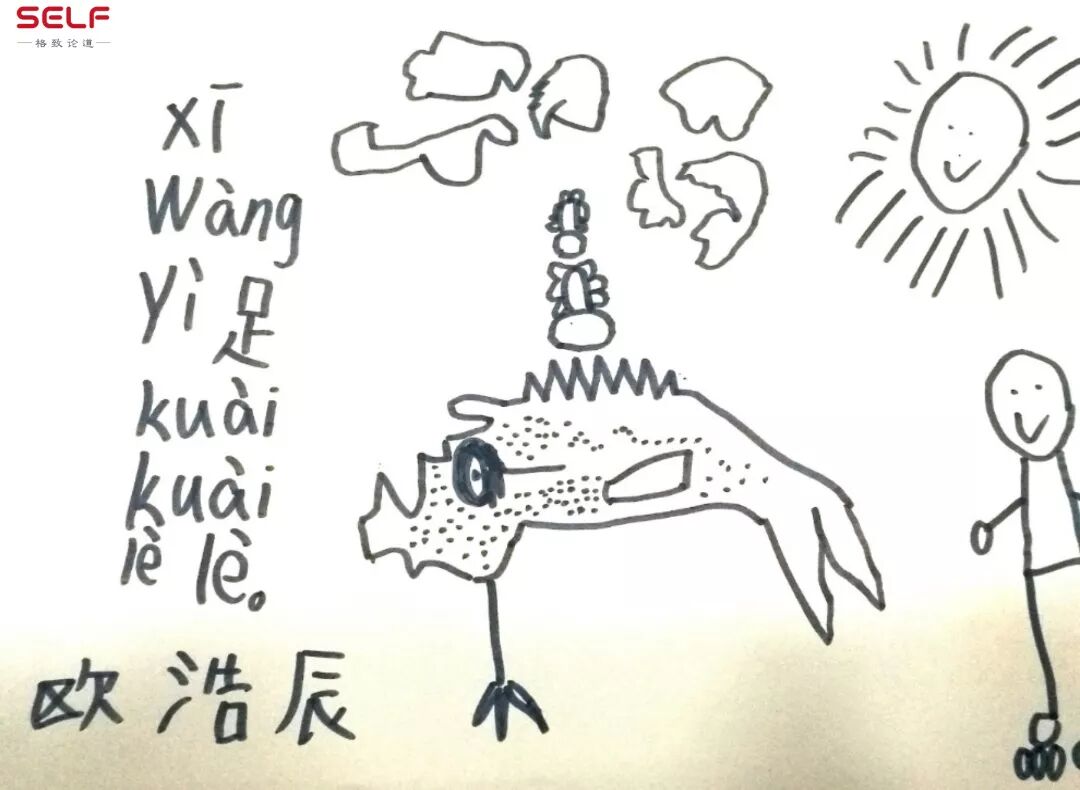 SELF
格致论道
xī
Wàng
yì足
kuài
kuài
lè lè。
欧浩辰